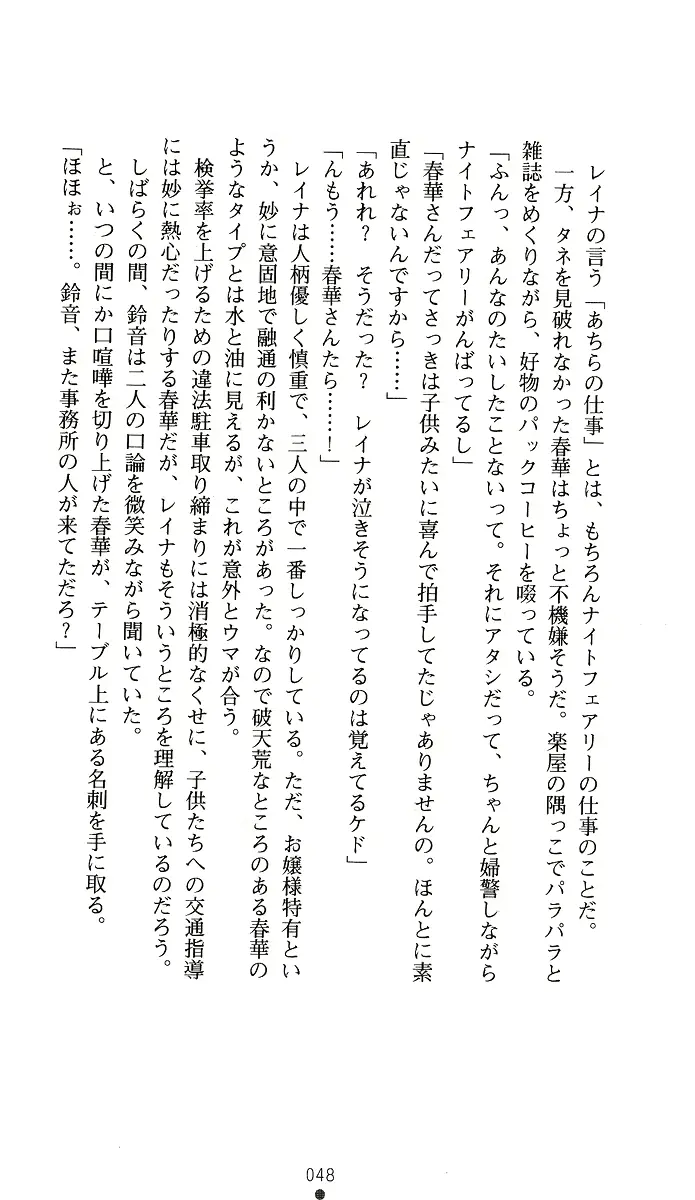 レイナの言う「あちらの仕事」とは、もちろんナイトフェアリーの仕事のことだ。
一方、タネを見破れなかった春華はちょっと不機嫌そうだ。楽屋の隅っこでパラパラと
雑誌をめくりながら、好物のパックコーヒーを啜っている。
「ふんっ、あんなのたいしたことないって。それにアタシだって、ちゃんと婦警しながら
ナイトフェアリーがんばってるし」
「春華さんだってさっきは子供みたいに喜んで拍手してたじゃありませんの。ほんとに素
直じゃないんですから……」
「あれれ？　そうだった？　レイナが泣きそうになってるのは覚えてるケド」
「んもう……春華さんたら……！」
レイナは人柄優しく慎重で、三人の中で一番しっかりしている。ただ、お嬢様特有とい
うか、妙に意固地で融通の利かないところがあった。なので破天荒なところのある春華の
ようなタイプとは水と油に見えるが、これが意外とウマが合う。
検挙率を上げるための違法駐車取り締まりには消極的なくせに、子供たちへの交通指導
には妙に熱心だったりする春華だが、レイナもそういうところを理解しているのだろう。
しばらくの間、鈴音は二人の口論を微笑みながら聞いていた。
と、いつの間にか口喧嘩を切り上げた春華が、テーブル上にある名刺を手に取る。
「ほほぉ……。鈴音、また事務所の人が来てただろ？」
048